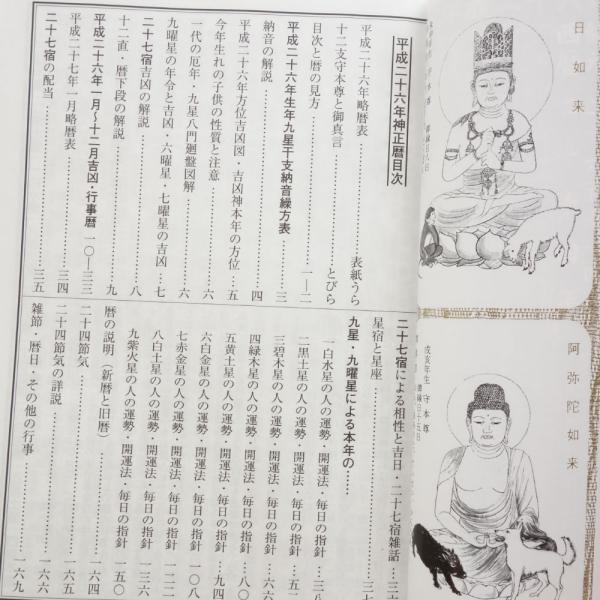 日如来
阿弥陀如来
戌亥年生 守本尊
平成二十六年神正暦目次
平成二十六年略暦表……表紙うら
十二支守本尊と御真言……とびら
目次と暦の見方……一―二
平成二十六年生年九星干支納音繰方表……三
納音の解説……四
平成二十六年方位吉凶図・吉凶神本年の方位…五
今年生れの子供の性質と注意……六
一代の厄年・九星八門廻盤図解……六
九曜星の年令と吉凶・六曜星・七曜星の吉凶…七
二十七宿吉凶の解説……八
十二直・暦下段の解説……九
平成二十六年一月～十二月吉凶・行事暦 一〇―三三
平成二十七年一月略暦表……三四
二十七宿の配当……三五
二十七宿による相性と吉日・二十七宿雑話…
星宿と星座……三七
九星・九曜星による本年の……
一白水星の人の運勢・開運法・毎日の指針…三八
二黒土星の人の運勢・開運法・毎日の指針…五二
三碧木星の人の運勢・開運法・毎日の指針…
四緑木星の人の運勢・開運法・毎日の指針…八〇
五黄土星の人の運勢・開運法・毎日の指針…九四
六白金星の人の運勢・開運法・毎日の指針 一〇八
七赤金星の人の運勢・開運法・毎日の指針 一二二
八白土星の人の運勢・開運法・毎日の指針 一三六
九紫火星の人の運勢・開運法・毎日の指針 一五〇
暦の説明（新暦と旧暦）……一六四
二十四節気……一六五
二十四節気の詳説……一六六
雑節・暦日・その他の行事……一六九